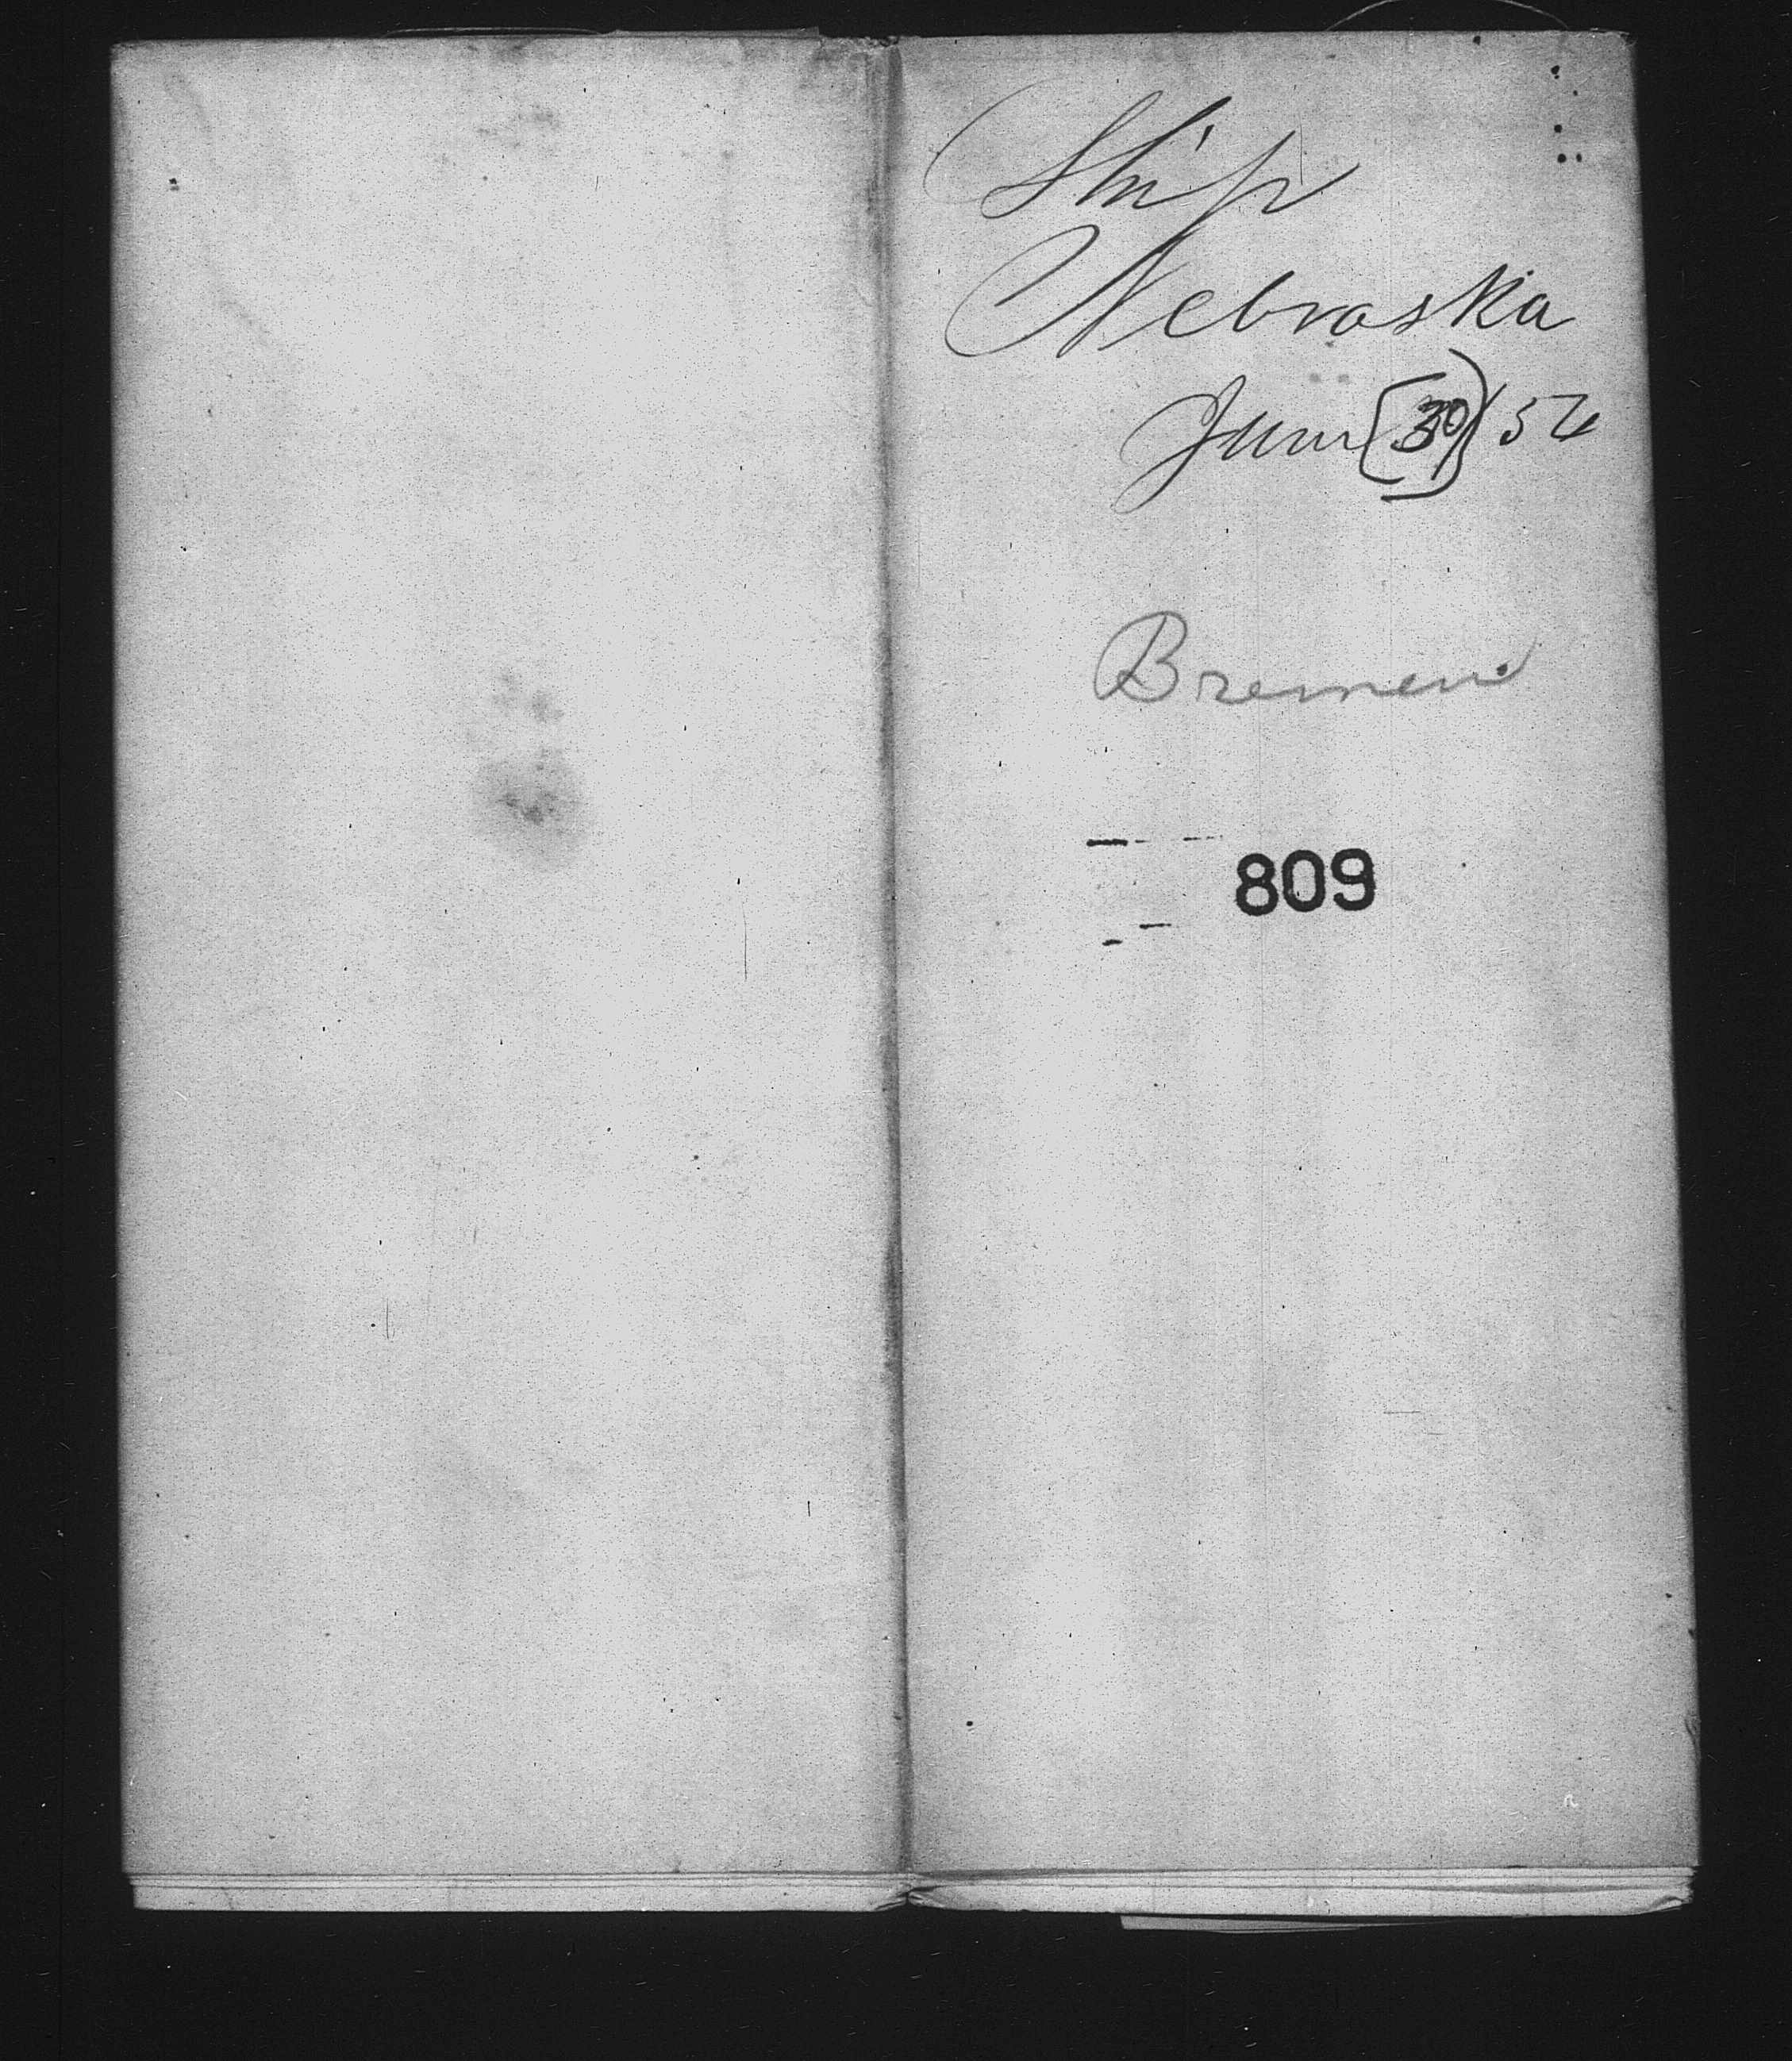 Ship
Nebraska
June (30) 54
Bremen
809